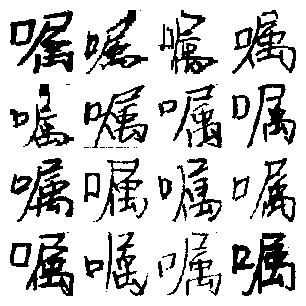 嘱嘱嘱嘱
嘱嘱嘱嘱
嘱嘱嘱嘱
嘱嘱嘱嘱